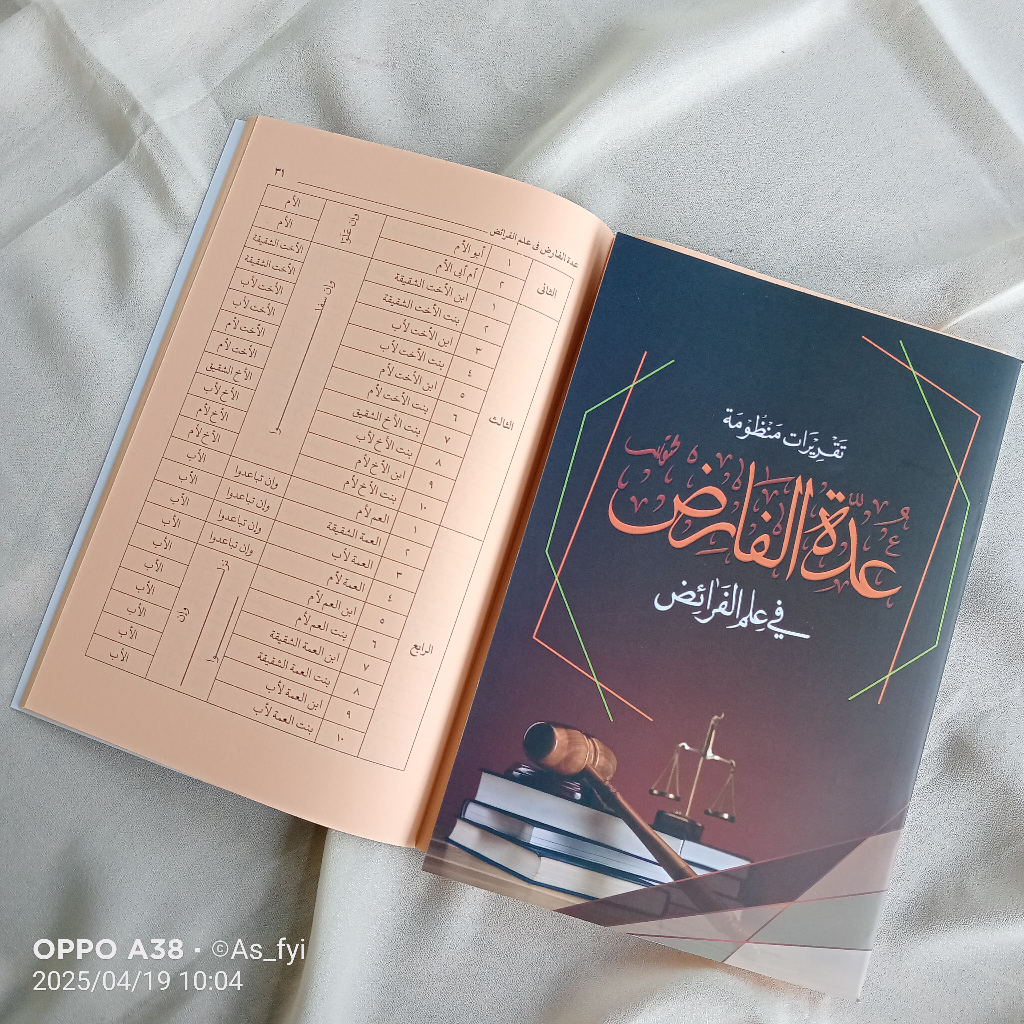 تَقْرِيْرَات مَنْظُوْمَة
عُدّة الفَارِض
في عِلم الفَرَائِض
عدة الفارض في علم الفرائض
٣١
الثاني
١ أبو الأم وإن علوا الأم
٢ أم أبي الأم الأم
الثالث
١ ابن الأخت الشقيقة وإن سفلوا الأخت الشقيقة
٢ بنت الأخت الشقيقة الأخت الشقيقة
٣ ابن الأخت لأب الأخت لأب
٤ بنت الأخت لأب الأخت لأب
٥ ابن الأخت لأم الأخت لأم
٦ بنت الأخت لأم الأخت لأم
٧ بنت الأخ الشقيق الأخ الشقيق
٨ بنت الأخ لأب الأخ لأب
٩ ابن الأخ لأم الأخ لأم
١٠ بنت الأخ لأم الأخ لأم
الرابع
١ العم لأم وإن تباعدوا الأب
٢ العمة الشقيقة وإن تباعدوا الأب
٣ العمة لأب وإن تباعدوا الأب
٤ العمة لأم وإن تباعدوا الأب
٥ ابن العم لأم وإن الأب
٦ بنت العم لأم الأب
٧ ابن العمة الشقيقة الأب
٨ بنت العمة الشقيقة الأب
٩ ابن العمة لأب الأب
١٠ بنت العمة لأب الأب
OPPO A38 · ©As_fyi
2025/04/19 10:04